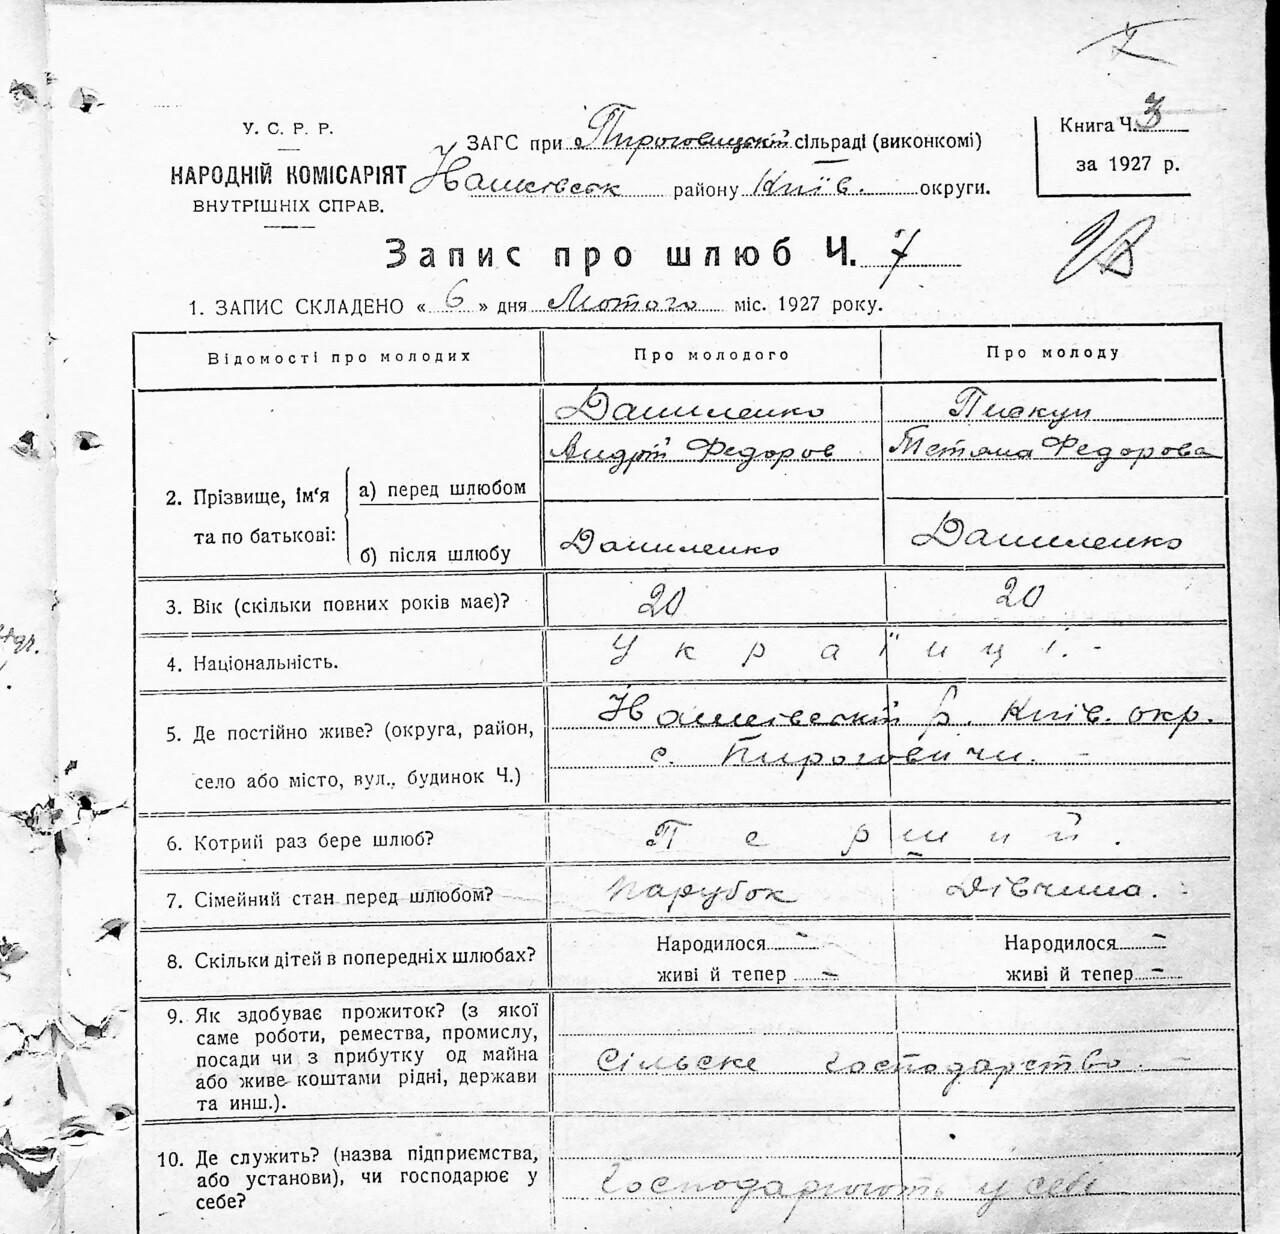 У. С. Р. Р.
НАРОДНІЙ КОМІСАРІЯТ
ВНУТРІШНІХ СПРАВ.
ЗАГС при Пироговицькій сільраді (виконкомі)
району Київ. округи.
Книга Ч. 3
за 1927 р.
Запис про шлюб Ч. 7
1. ЗАПИС СКЛАДЕНО « 6 » дня Лютого міс. 1927 року.
Відомості про молодих Про молодого Про молоду
2. Прізвище, ім‘я та по батькові:
а) перед шлюбом
Даниленко Андрій Федоров
Пискун Тетяна Федорова
б) після шлюбу
Даниленко Даниленко
3. Вік (скільки повних років має)? 20 20
4. Національність. Українці. -
5. Де постійно живе? (округа, район,
село або місто, вул., будинок Ч.)
р. Київ. окр.
с. Пироговичи. -
6. Котрий раз бере шлюб? Перший.
7. Сімейний стан перед шлюбом? Парубок Дівчина.
8. Скільки дітей в попередніх шлюбах?
Народилося - Народилося -
живі й тепер - живі й тепер -
9. Як здобуває прожиток? (з якої
саме роботи, ремества, промислу,
посади чи з прибутку од майна
або живе коштами рідні, держави
та инш.).
Сільске господарство. -
10. Де служить? (назва підприємства,
або установи), чи господарює у
себе?
Господарюють у себе